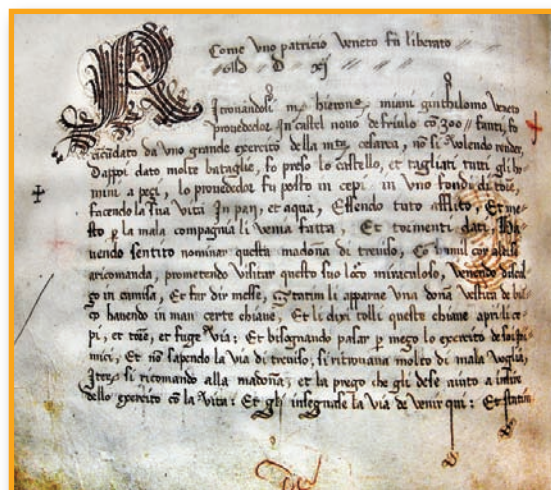 Come vno patricio veneto fu liberato
M D XI
Ritrouandosi mr hieronº miani gintilhomo veneto
prouededor In castel nouo de friulo cõ 300 // fanti, fo
circũdato da vno grande exercito della mtà cesarea, nõ si volendo render,
Dappoi dato molte bataglie, fo preso lo castello, et tagliati tutti gli ho
mini a peçi, lo prouededor fu posto in cepi in vno fondi di tore,
facendo la sua vita In pan, et aqua, Essendo tuto afflito, Et me
sto p la mala compagnia li venia fatta, Et tormenti dati, Ha
uendo sentito nominar questa madõna di treuiso, Cõ humil cor a essa
aricomanda, prometendo visitar questo suo loco miraculoso, venendo discal
zo in camisa, Et far dir messe, statim li apparue vna dona vestita de biã
co hauendo in man certe chiaue, Et li dixe tolli queste chiaue apri li ce
pi, et tore, et fuge via: Et bisognando pasar p mezo lo exercito de soi ini
mici, Et nõ sapendo la via di treuiso, si ritrouaua molto di mala voglia,
Iterũ si ricomando alla madona, et la prego che gli dese aiuto a insire
dello exercito cõ la vita: Et gli insegnase la via de venir qui: Et statim